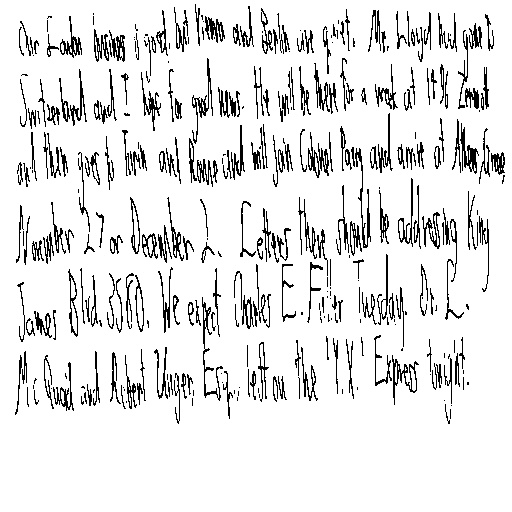 Our London business is good, but Vienna and Berlin are quiet. Mr. Lloyd has gone to
Switzerland and I hope for good news. He will be there for a week at 1496 Zermott
and then goes to Turin and Rome and will join Colonel Parry and arrive at Athens, Greece
November 27 or December 2. Letters there should be addressed King
James Blvd. 3580. We expect Charles E. Fuller Tuesday. Dr. L.
Mc Quaid and Robert Unger, Esq., left on the "Y.X." Express tonight.